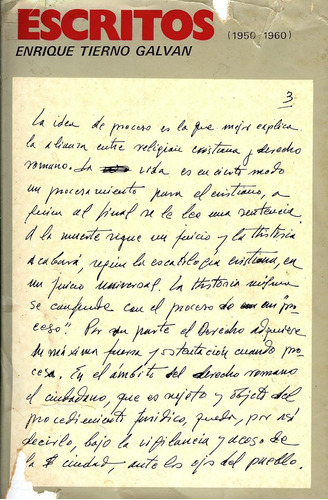 ESCRITOS
(1950-1960)
ENRIQUE TIERNO GALVAN
3
La idea de proceso es la que mejor explica
la alianza entre religión cristiana y derecho
romano. La vida es en cierto modo
un procesamiento para el cristiano, a
quien al final se le lee una sentencia.
A la muerte sigue un juicio y la Historia
acabará, según la escatología cristiana, en
un juicio universal. La Historia misma
se confunde con el proceso en "pro
ceso". Por su parte el Derecho adquiere
su máxima fuerza y ostentación cuando pro
cesa. En el ámbito del derecho romano
el ciudadano, que es sujeto y objeto del
procedimiento jurídico, queda, por así
decirlo, bajo la vigilancia y acoso de
la ciudad ante los ojos del pueblo.